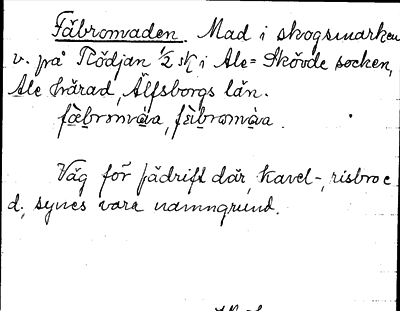 Fäbromaden. Mad i skogsmarken
v. på Rödjan 1/2 sk i Ale=Skövde socken,
Ale härad, Älfsborgs län.
fæ̀bromáa, fæ̀bromáa.
Väg för fädrift där, kavel-, risbro e
d., synes vara namngrund.